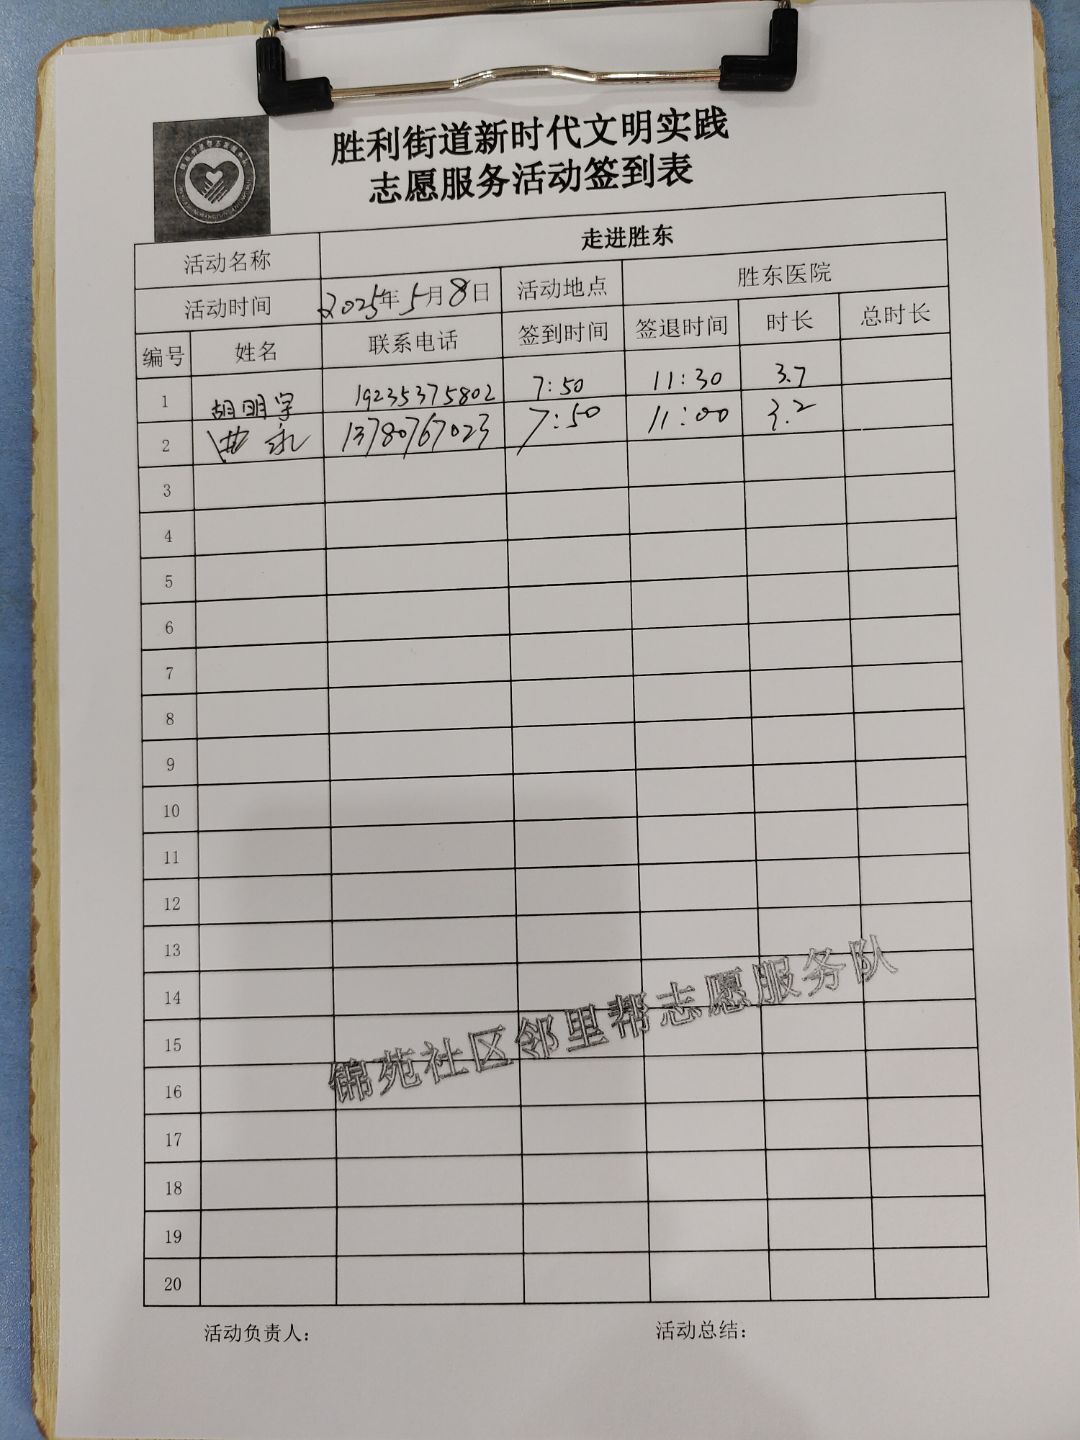 胜利街道新时代文明实践
志愿服务活动签到表
活动名称 走进胜东
活动时间 2025年5月8日 活动地点 胜东医院
编号 姓名 联系电话 签到时间 签退时间 时长 总时长
1 胡明宇 19235375802 7:50 11:30 3.7
2 曲永 13780767023 7:50 11:00 3.2
3
4
5
6
7
8
9
10
11
12
13
14
15
16
17
18
19
20
锦苑社区邻里帮志愿服务队
活动负责人: 活动总结: